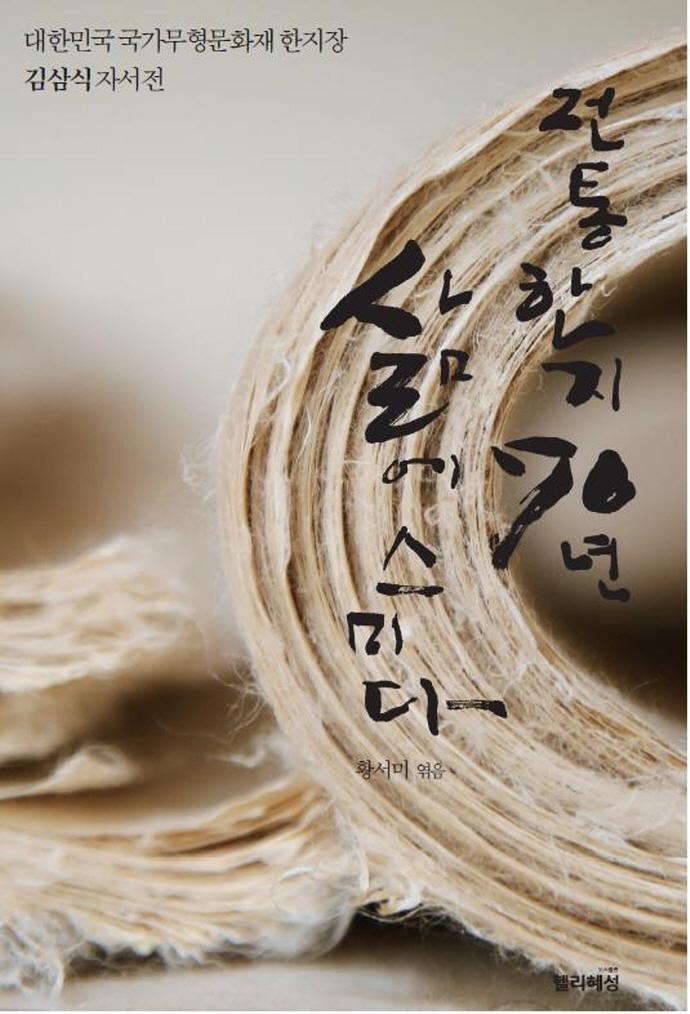 대한민국 국가무형문화재 한지장
김삼식 자서전
전통 한지 70년
삶에 스미다
황서미 엮음
헬리혜성